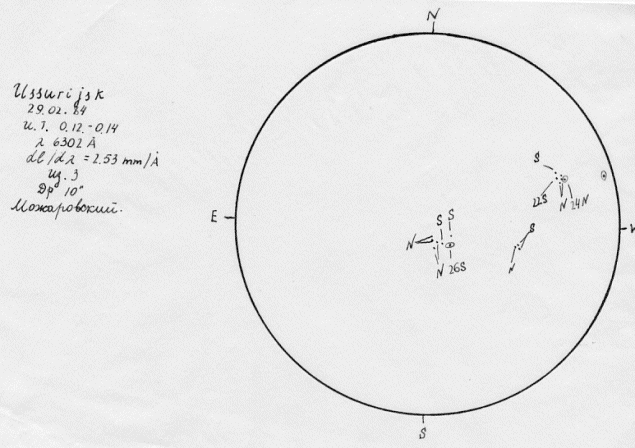 Ussurijsk
29.02.24
U.T. 0.12-0.14
λ 6302 Å
dl/dλ = 2.53 mm/Å
Из. 3
Др 10"
Можаровский.
N
S
22S
N 24N
E
W
S S
S
N
N
N 26S
S